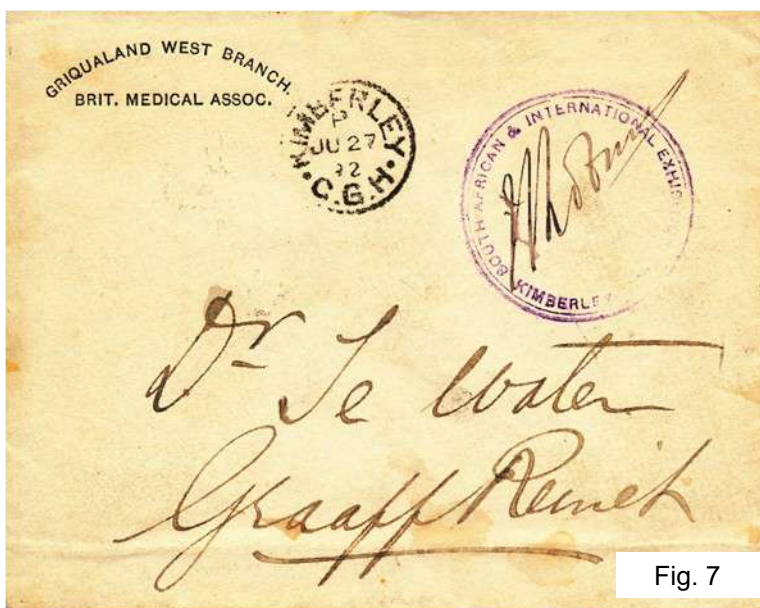 GRIQUALAND WEST BRANCH.
BRIT. MEDICAL ASSOC.
KIMBERLEY
P
JU 27
92
C.G.H.
SOUTH AFRICAN & INTERNATIONAL
KIMBERLEY
Dr Te Water
Graaff Reinet
Fig. 7